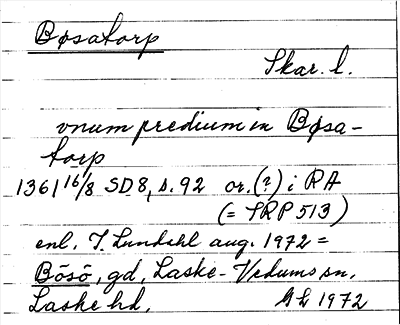 Bøsatorp
Skar. l.
vnum predium in Bøsa-
torp
1361 16/8 SD8, s. 92 or. (?) i RA
(= SRP 513)
enl. I. Lundahl aug. 1972 =
Bösö, gd, Laske-Vedums sn,
Laske hd.
GL 1972